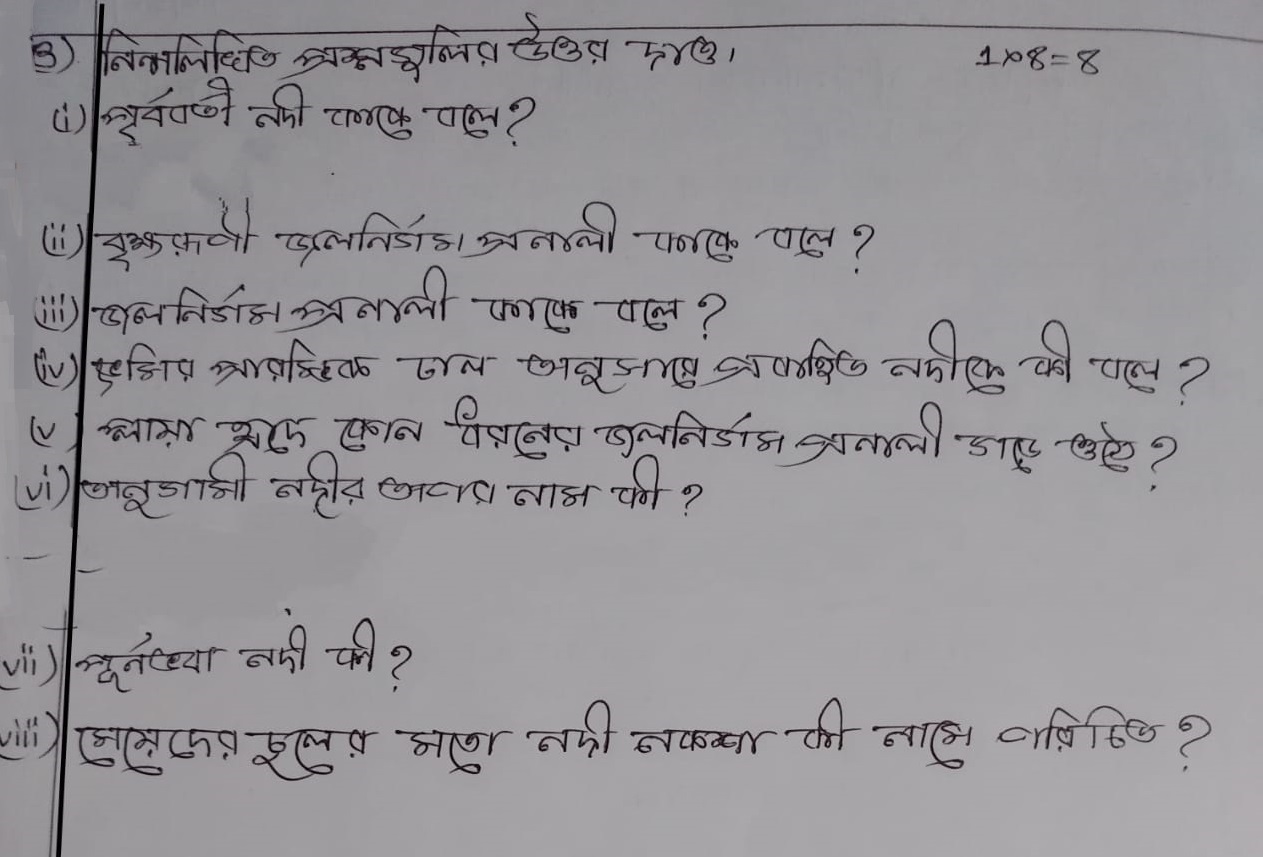 3) নিম্নলিখিত প্রশ্নগুলির উত্তর দাও। 1×8=8
(i) পূর্ববর্তী নদী কাকে বলে?
(ii) বৃক্ষরূপী জলনির্গম প্রনালী কাকে বলে?
(iii) জলনির্গম প্রনালী কাকে বলে?
(iv) ভূমির প্রারম্ভিক ঢাল অনুসারে প্রবাহিত নদীকে কী বলে?
(v) লাভা হ্রদে কোন ধরনের জলনির্গম প্রনালী গড়ে ওঠে?
(vi) অনুগামী নদীর অপর নাম কী?
vii) নদী কী?
viii) মেয়েদের চুলের মতো নদী নকশা কী নামে পরিচিত?